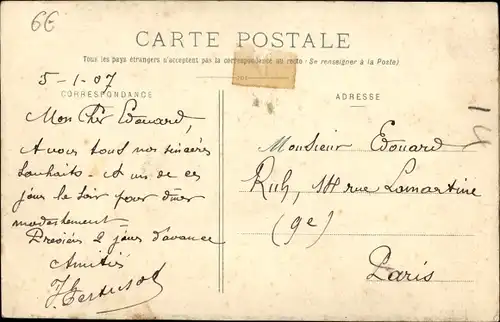 6€
CARTE POSTALE
Tous les pays étrangers n'acceptent pas la correspondance au recto (Se renseigner à la Poste)
5-1-07
CORRESPONDANCE
ADRESSE
Mon Cher Edouard,
A vous tous nos sincères
souhaits - A un de ces
jours le soir pour dîner
modestement
2 jours d'avance
Amitiés
Monsieur Edouard
rue Lamartine
(9e)
Paris